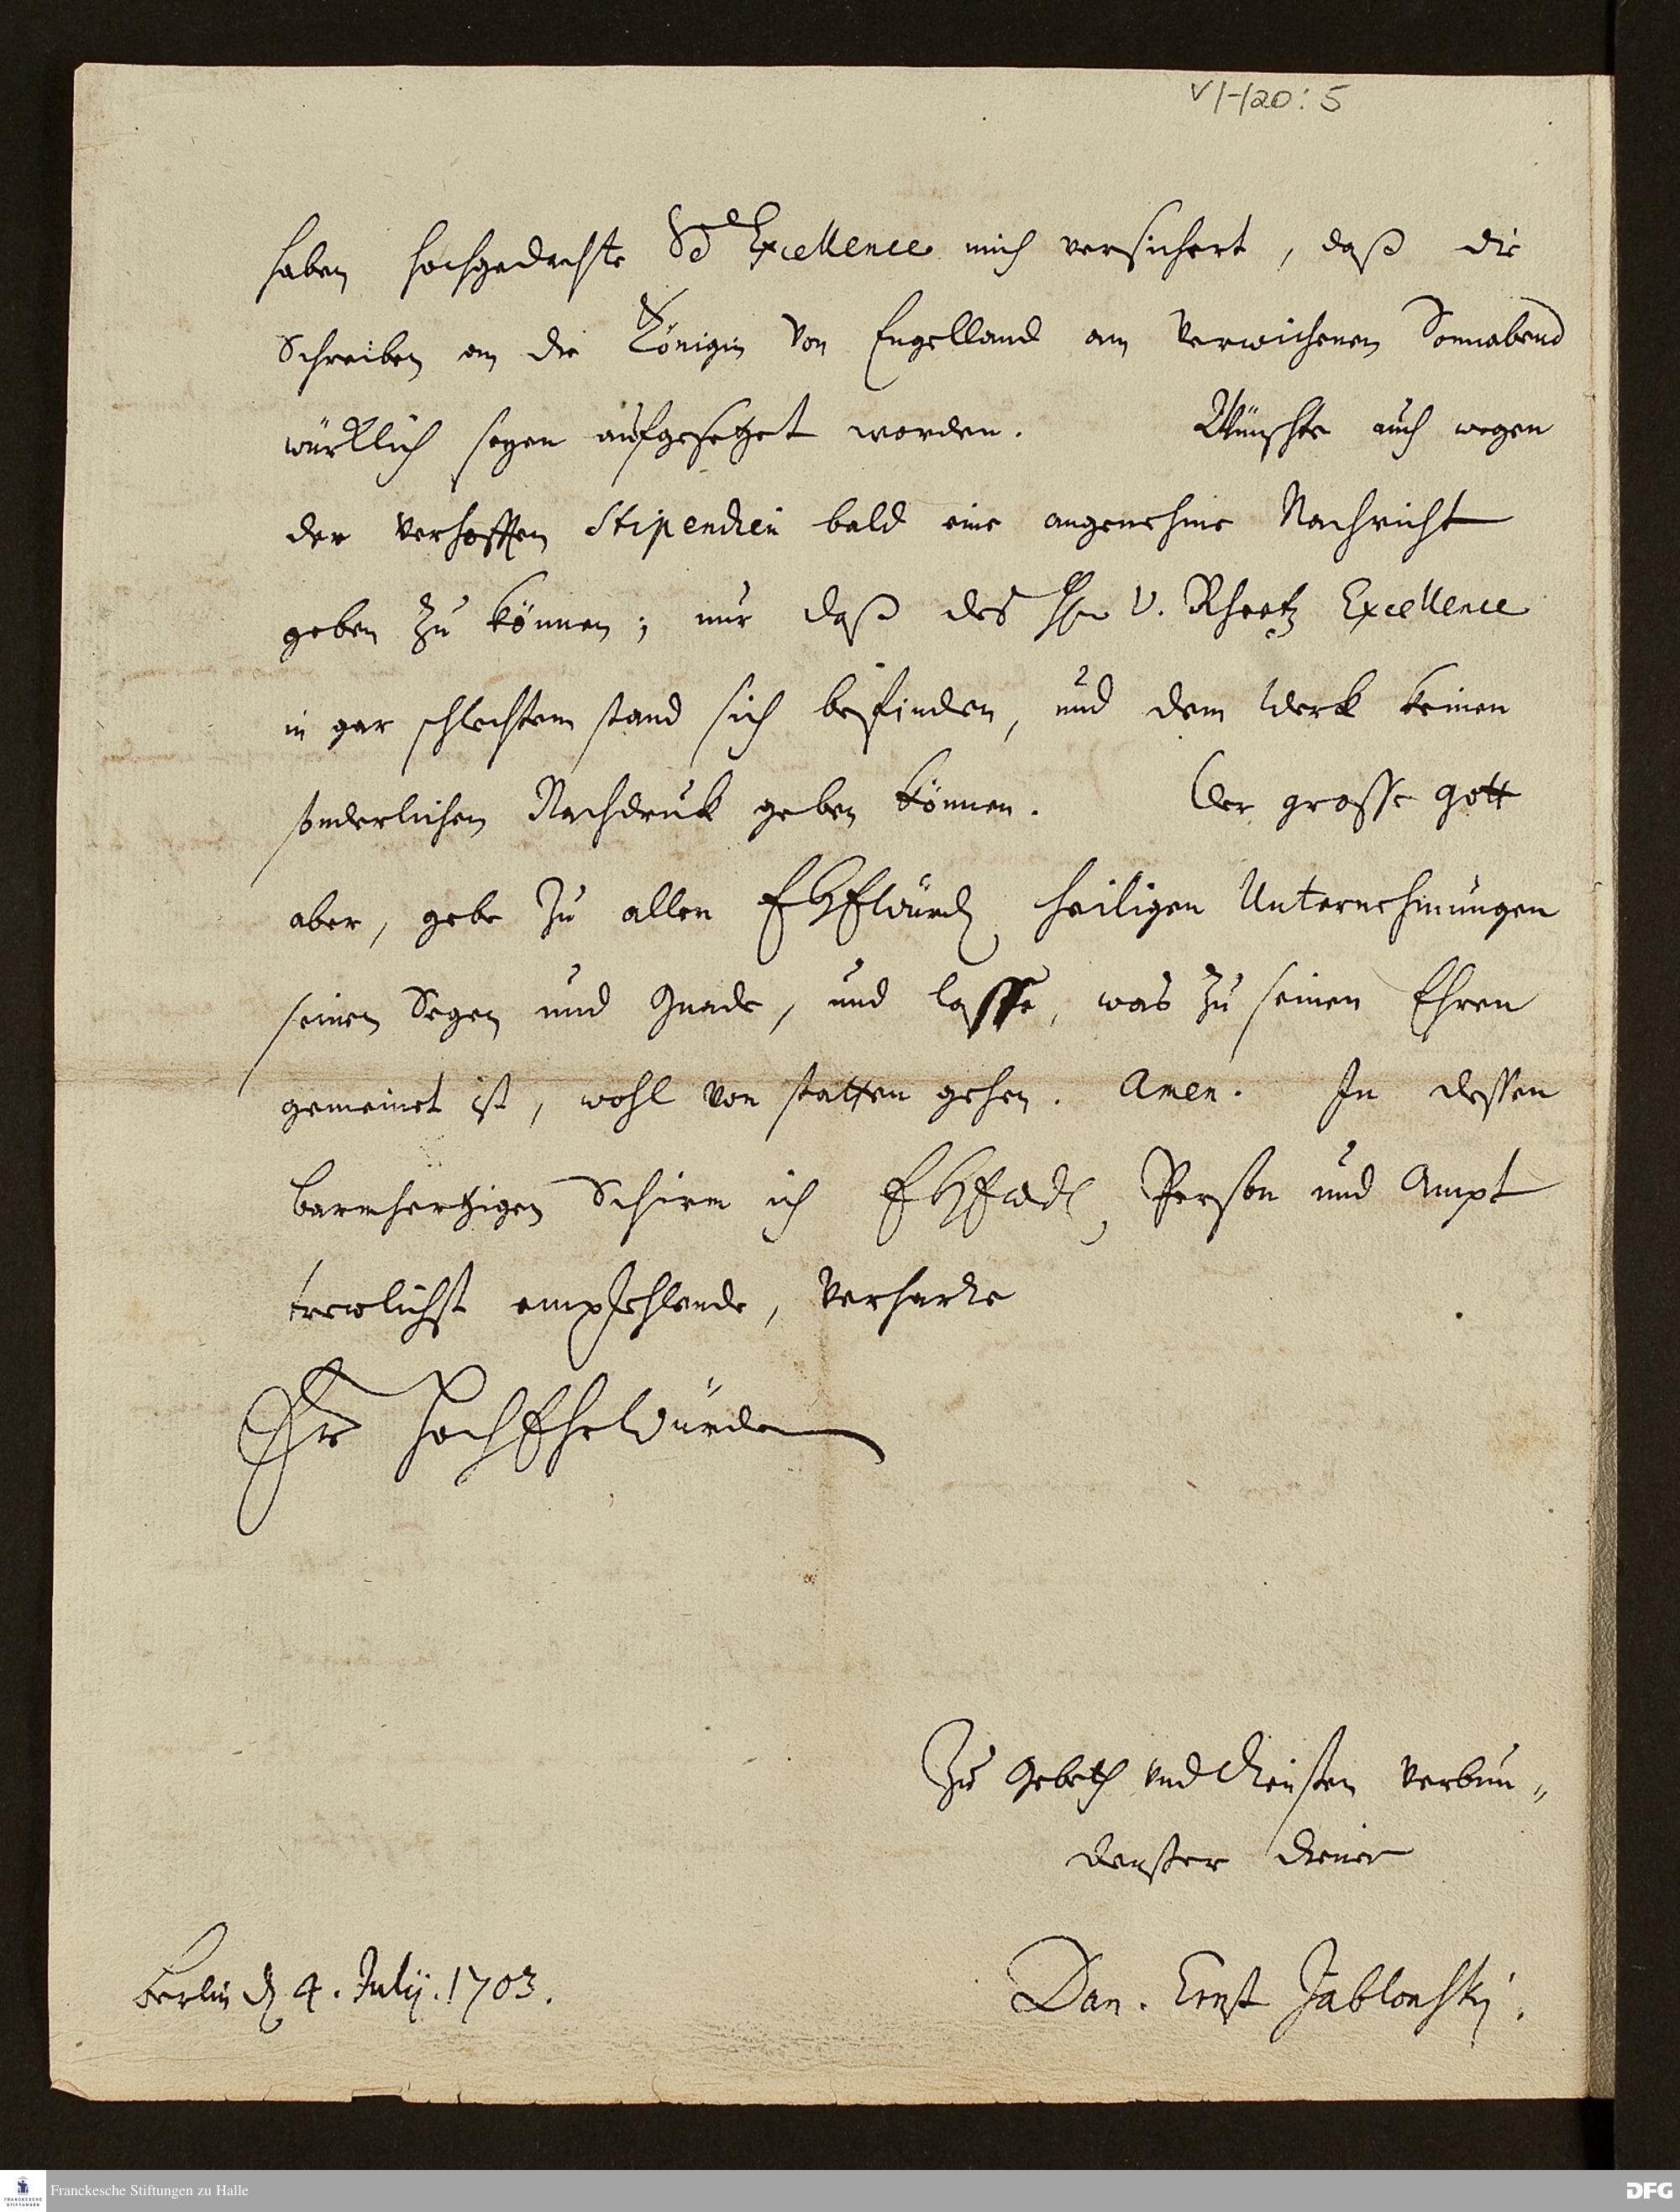 VI-120:5
haben hochgedachte Se Excellence mich versichert, daß die
Schreiben an die Königin von Engelland am verwichenen Sonnabend
würklich seyen aufgesetzet worden. Wünschte auch wegen
der verhofften Stipendien bald eine angenehme Nachricht
geben zu können; nur daß des Hn v. Rheetz Excellence
in gar schlechtem stand sich befinden, und dem Werk keinen
sonderlichen Nachdruk geben können. Der grosse Gott
aber, gebe zu allen EHEWürd heiligen Unternehmungen
seinen Segen und Gnade, und lasse, was zu seinen Ehren
gemeinet ist, wohl von statten gehen. Amen. In dessen
barmhertzigen Schirm ich EHEWd Person und Ampt
trewlichst empfehlende, verharre
Er HochEhrWürden
Zu Gebeth und diensten verbun-
denster diener
Berlin d 4. Julij. 1703.
Dan. Ernst Jablonski.
Franckesche Stiftungen zu Halle
DFG